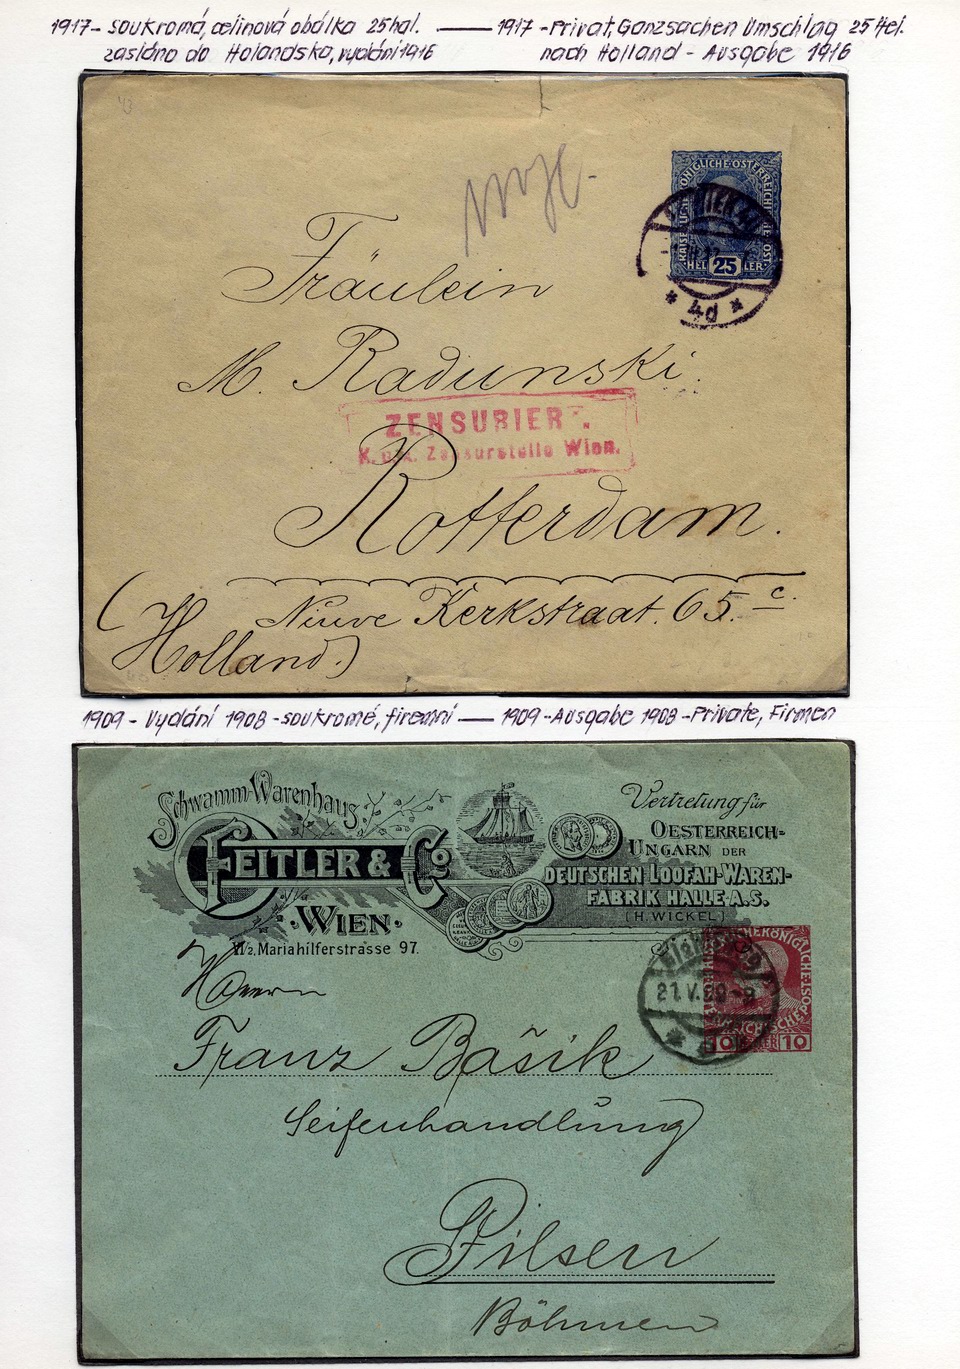 1917 - soukromá, celinová obálka 25 hal. — 1917 - Privat, Ganzsachen Umschlag 25 Hel.
zasláno do Holandska, vydání 1916 nach Holland - Ausgabe 1916
KÖNIGLICHE·ÖSTERREICHI
HEL 25 LER
* 4d *
Fräulein
M. Radunski.
ZENSURIERT.
K. u. k. Zensurstelle Wien.
Rotterdam.
Nieuve Kerkstraat. 65. c.
(Holland.)
1909 - Vydání 1908 - soukromé, firemní — 1909 - Ausgabe 1908 - Private, Firmen
Schwamm-Warenhaus
FEITLER & Co
·WIEN·
VI/2, Mariahilferstrasse 97.
Vertretung für
OESTERREICH-
UNGARN DER
DEUTSCHEN LOOFAH-WAREN-
FABRIK HALLE A.S.
(H. WICKEL)
21.V.09-9
10 10
Herrn
Franz Bašik
Seifenhandlung
Pilsen
Böhmen